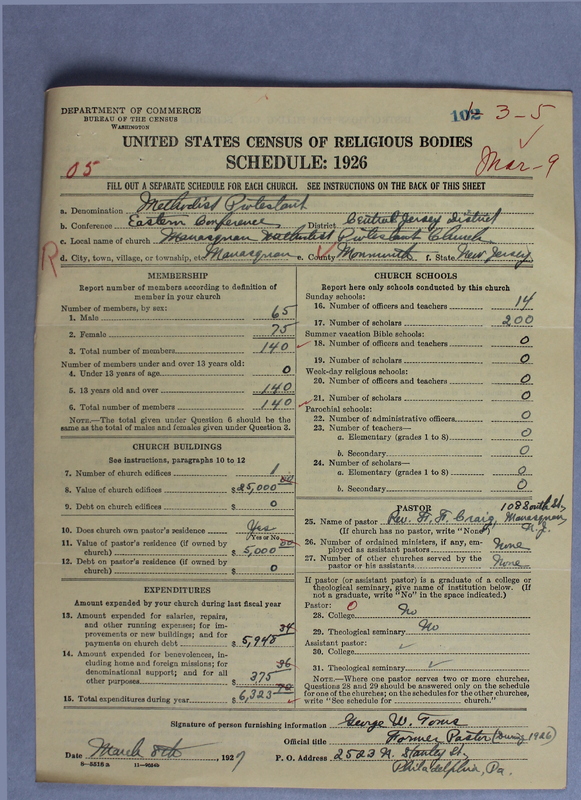 DEPARTMENT OF COMMERCE
BUREAU OF THE CENSUS
WASHINGTON
102 3-5
UNITED STATES CENSUS OF RELIGIOUS BODIES
SCHEDULE: 1926
05
Mar-9
FILL OUT A SEPARATE SCHEDULE FOR EACH CHURCH. SEE INSTRUCTIONS ON THE BACK OF THIS SHEET
a. Denomination Methodist Protestant
b. Conference Eastern Conference District Central Jersey District
c. Local name of church Manasquan Methodist Protestant Church
R
d. City, town, village, or township, etc. Manasquan e. County Monmouth f. State New Jersey
MEMBERSHIP
Report number of members according to definition of
member in your church
Number of members, by sex:
1. Male 65
2. Female 75
3. Total number of members 140
Number of members under and over 13 years old:
4. Under 13 years of age 0
5. 13 years old and over 140
6. Total number of members 140
NOTE.—The total given under Question 6 should be the
same as the total of males and females given under Question 3.
CHURCH BUILDINGS
See instructions, paragraphs 10 to 12
7. Number of church edifices 1
8. Value of church edifices $25,000 00
9. Debt on church edifices $ 0
10. Does church own pastor's residence Yes
(Yes or No)
11. Value of pastor's residence (if owned by
church) $5,000 00
12. Debt on pastor's residence (if owned by
church) $ 0
EXPENDITURES
Amount expended by your church during last fiscal year
13. Amount expended for salaries, repairs,
and other running expenses; for im-
provements or new buildings; and for
payments on church debt $5,948 34
14. Amount expended for benevolences, in-
cluding home and foreign missions; for
denominational support; and for all
other purposes $ 375 36
15. Total expenditures during year $6,323 70
CHURCH SCHOOLS
Report here only schools conducted by this church
Sunday schools:
16. Number of officers and teachers 14
17. Number of scholars 200
Summer vacation Bible schools:
18. Number of officers and teachers 0
19. Number of scholars 0
Week-day religious schools:
20. Number of officers and teachers 0
21. Number of scholars 0
Parochial schools:
22. Number of administrative officers 0
23. Number of teachers—
a. Elementary (grades 1 to 8) 0
b. Secondary 0
24. Number of scholars—
a. Elementary (grades 1 to 8) 0
b. Secondary 0
PASTOR 108 South St.,
25. Name of pastor Rev. Craig, Manasquan,
(If church has no pastor, write "None") N.J.
26. Number of ordained ministers, if any, em-
ployed as assistant pastors None
27. Number of other churches served by the
pastor or his assistants None
If pastor (or assistant pastor) is a graduate of a college or
theological seminary, give name of institution below. (If
not a graduate, write "No" in the space indicated.)
Pastor: 0
28. College No
29. Theological seminary No
Assistant pastor:
30. College
31. Theological seminary
NOTE.—Where one pastor serves two or more churches,
Questions 28 and 29 should be answered only on the schedule
for one of the churches; on the schedules for the other churches,
write "See schedule for church."
Signature of person furnishing information George W. Toms
Official title Former Pastor (During 1926)
Date March 8th, 1927 P. O. Address 2523 N. Stanley St.
8—5518 a Philadelphia, Pa.